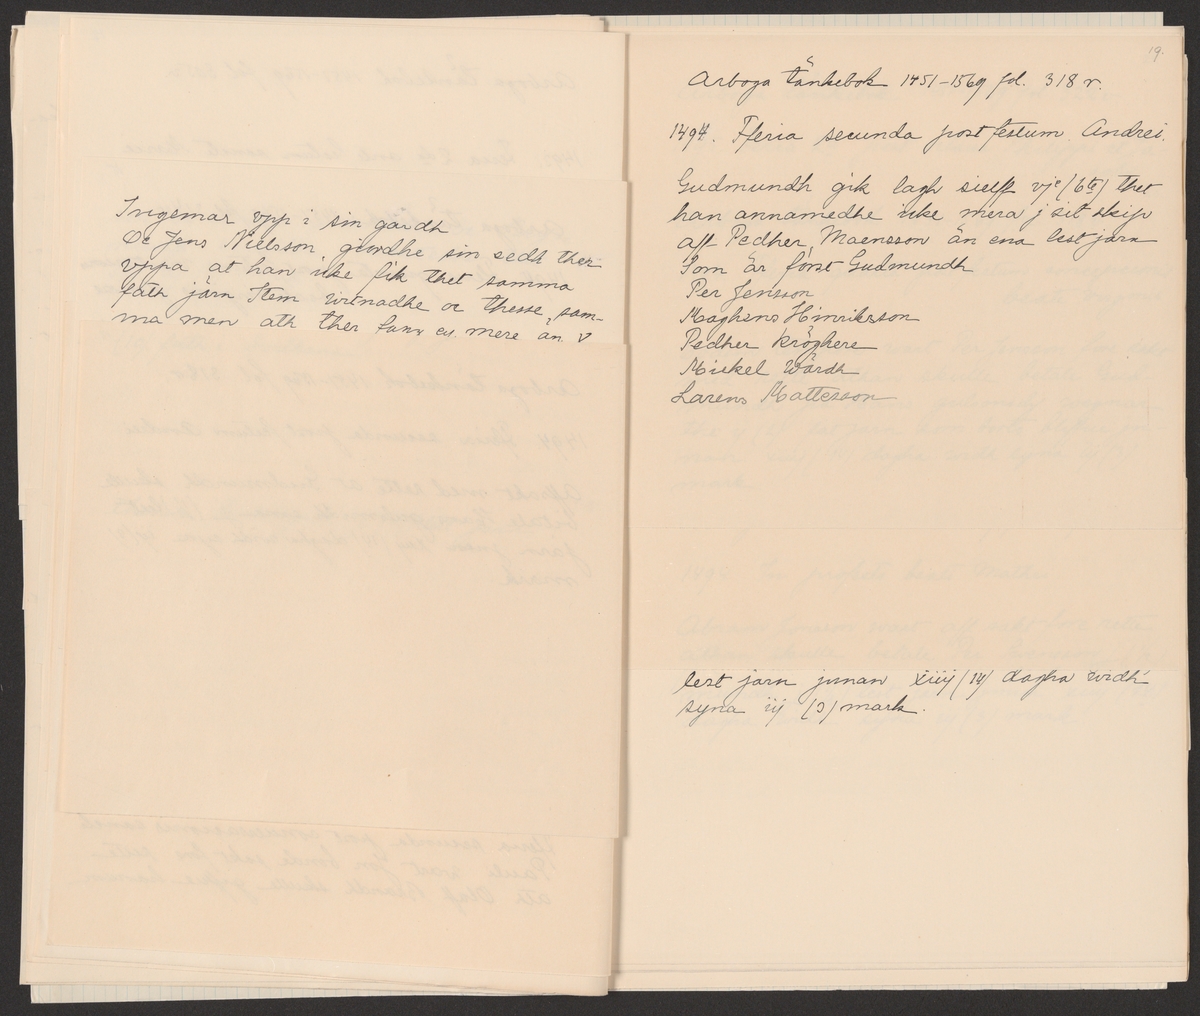 Ingemar vpp i sin gardh
Oc Jens Nielsson giordhe sin eedh ther
vppa at han icke fik thet samma
fath järn Item witnadhe oc thesse sam-
ma men ath ther fanz ey mere än v
19.
Arboga tänkebok 1451-1569 fol. 318 r.
1494. Fferia secunda post festum Andrei.
Gudmundh gik lagh sielff vjte (6te) thet
han annamedhe icke mera j sit skip
aff Pedher Maensson än ena lest jarn
Som är först Gudmundh
Per Jensson
Maghens Hinriksson
Pedher kröghere
Mickel Wårdh
Larens Mattesson
lest jarn jnnan xiiij (14) dagha widh
syna iij (3) mark.